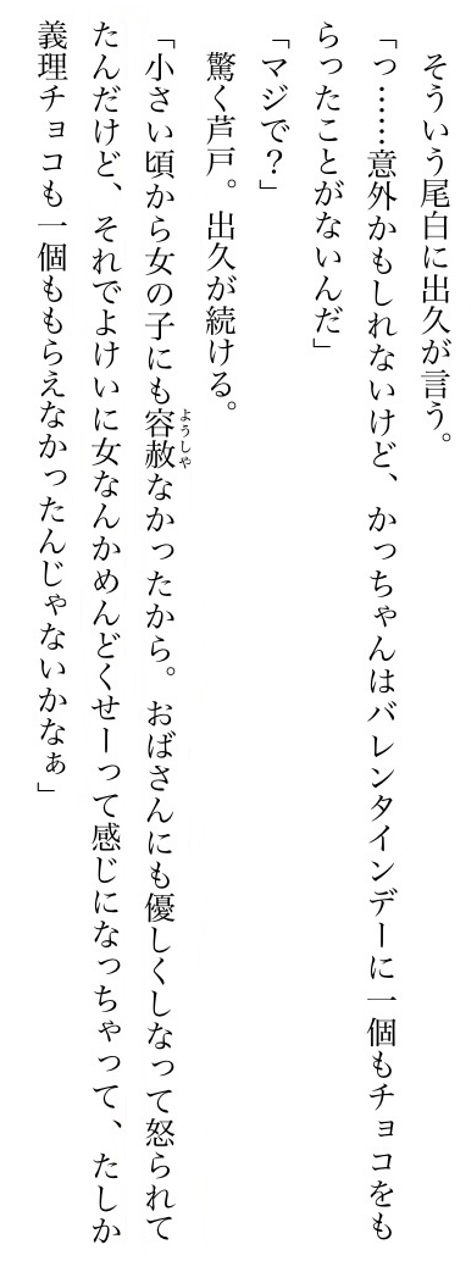 そういう尾白に出久が言う。
「っ……意外かもしれないけど、かっちゃんはバレンタインデーに一個もチョコをも
らったことがないんだ」
「マジで？」
驚く芦戸。出久が続ける。
「小さい頃から女の子にも容赦なかったから。おばさんにも優しくしなって怒られて
ようしや
たんだけど、それでよけいに女なんかめんどくせーって感じになっちゃって、たしか
義理チョコも一個ももらえなかったんじゃないかなぁ」